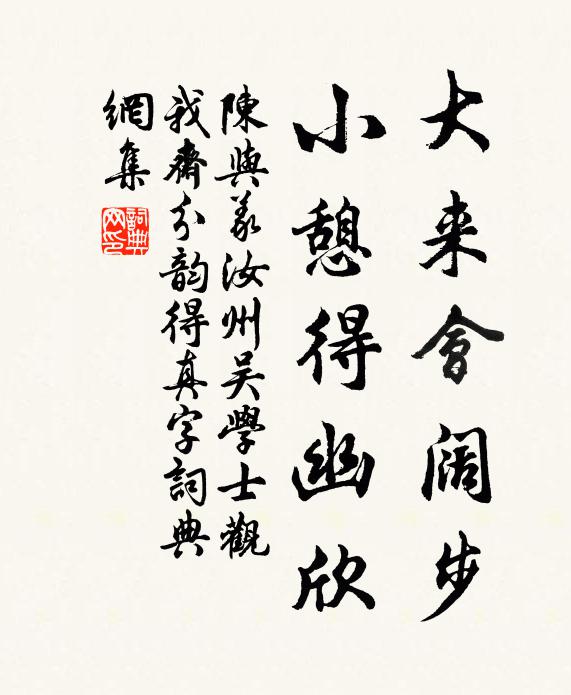 大来會阔步
小憩得幽欣
陳與義汝州吴學士觀
我齋分韵得真字詞典
網集
詞典网印